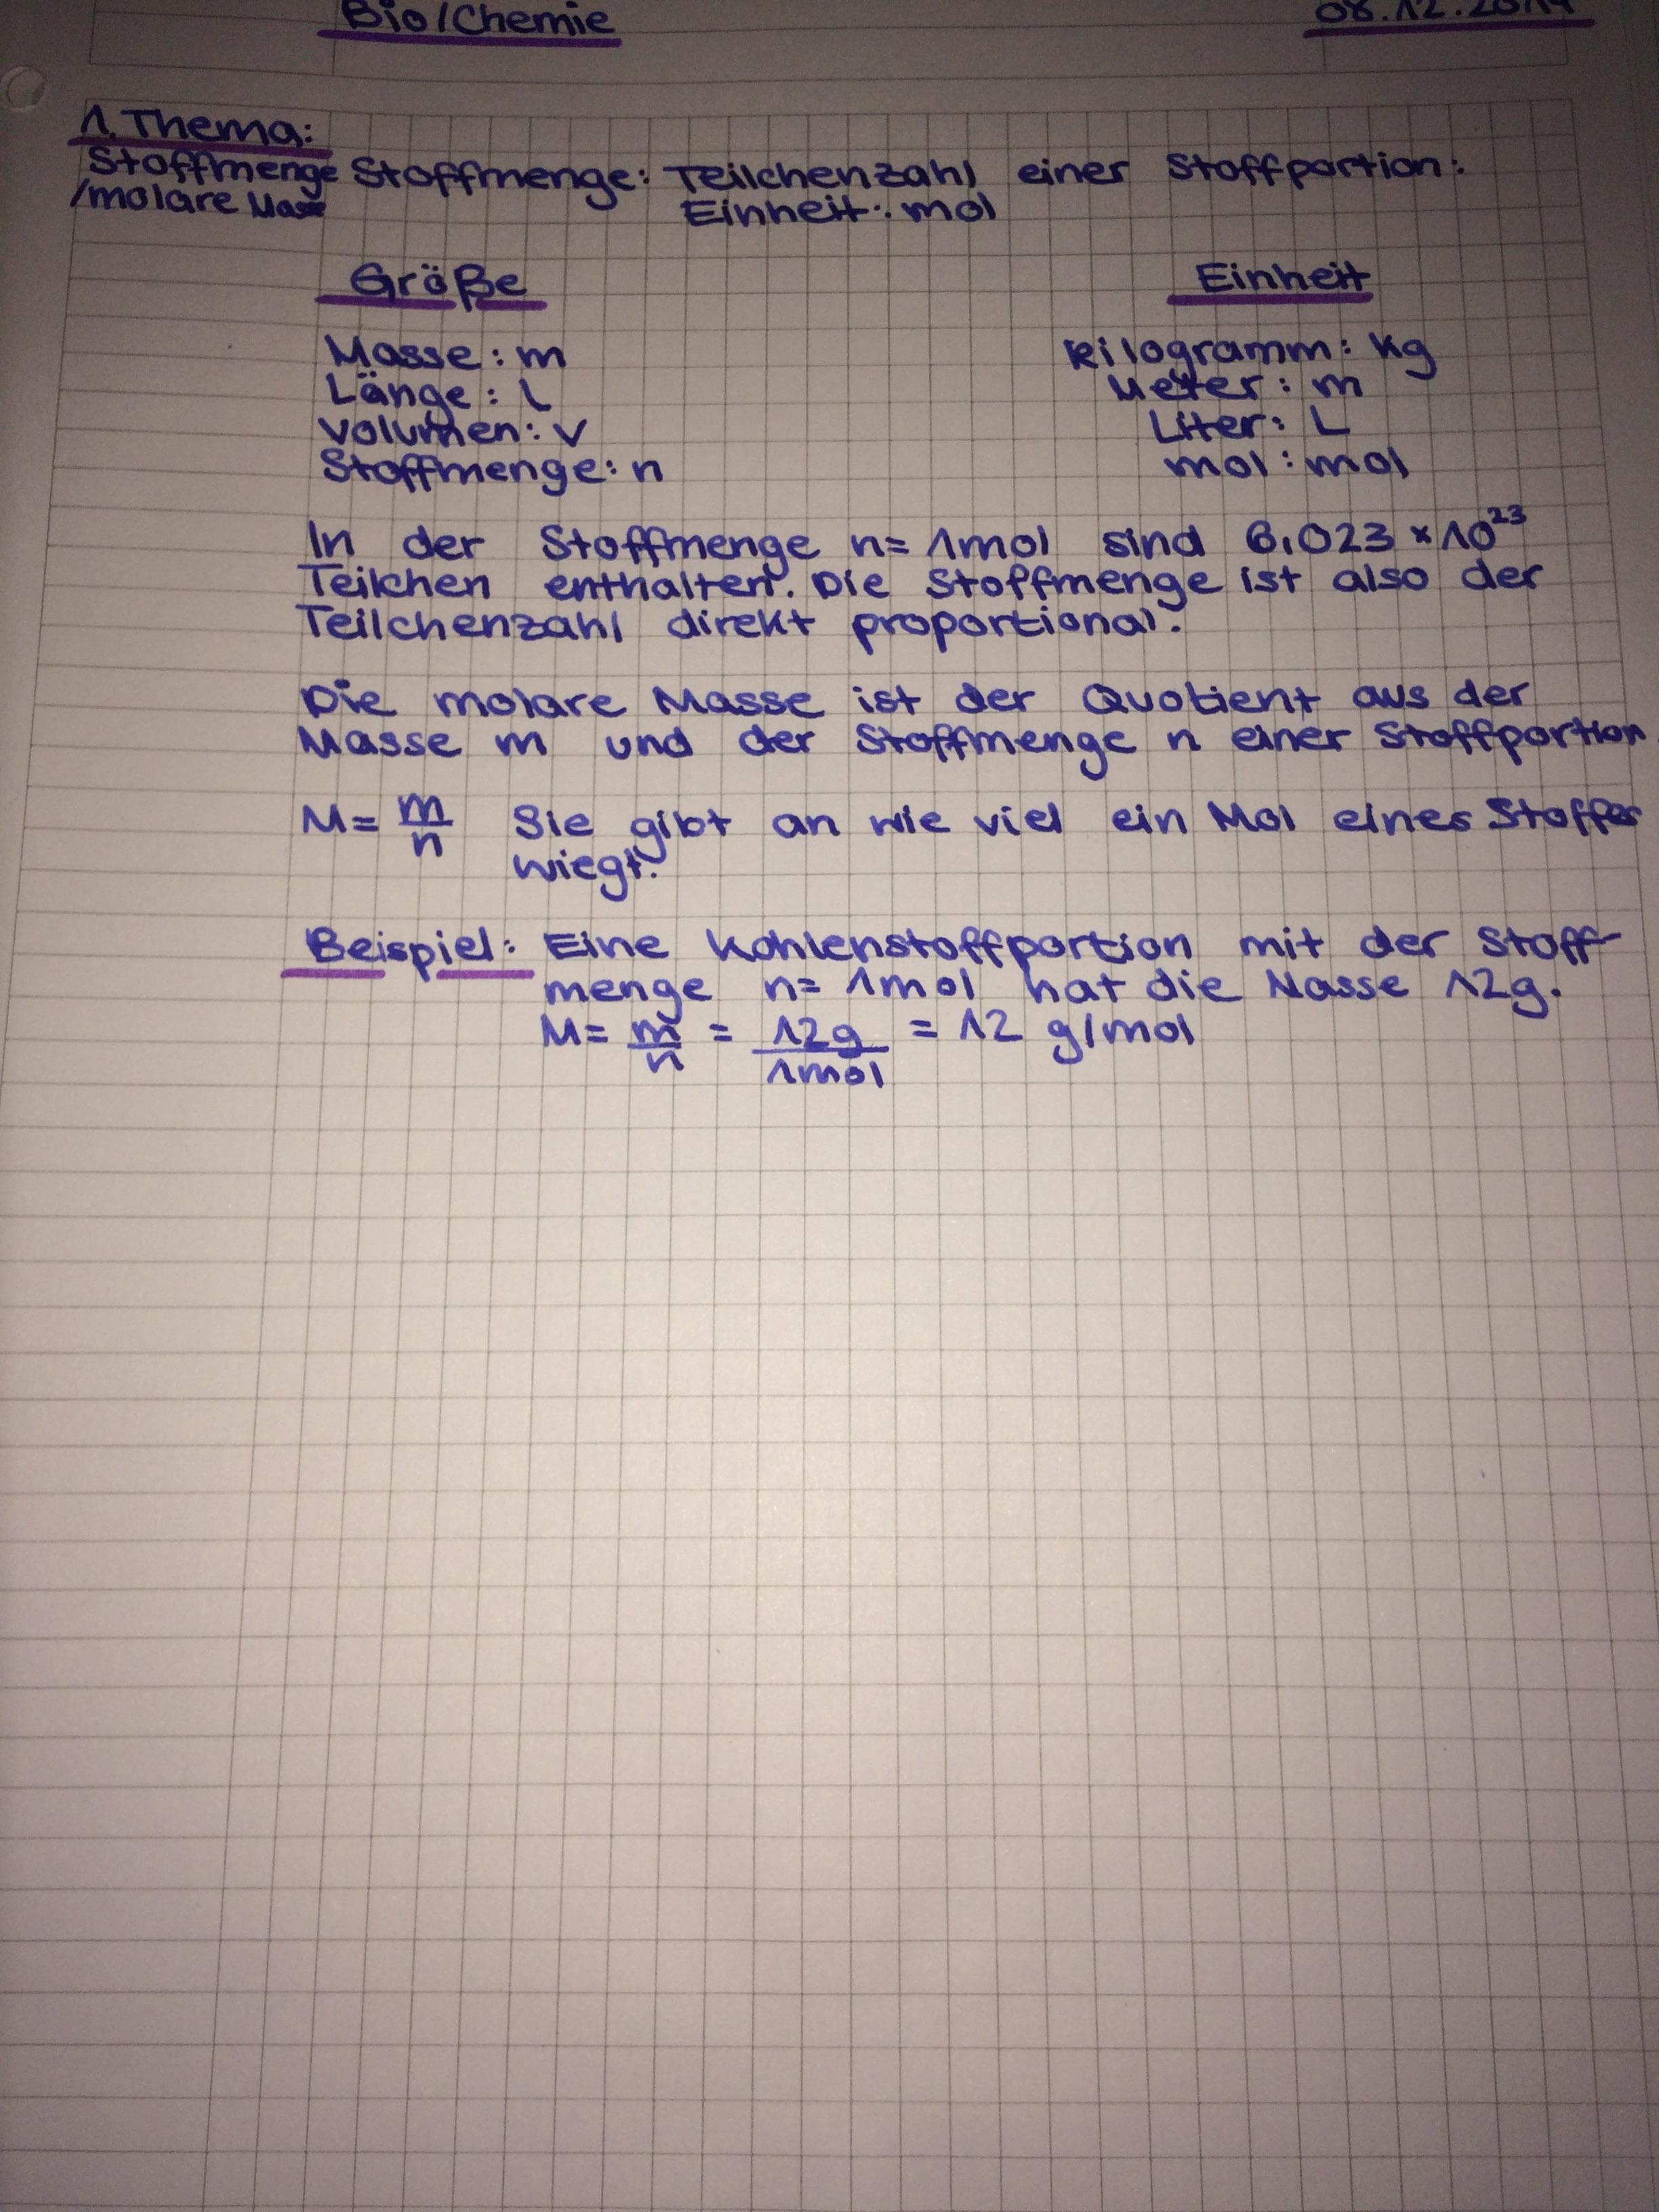 Bio/Chemie 08.12.2014
1. Thema:
Stoffmenge
/molare Masse
Stoffmenge: Teilchenzahl einer Stoffportion:
Einheit: mol
Größe Einheit
Masse: m Kilogramm: kg
Länge: l Meter: m
Volumen: V Liter: L
Stoffmenge: n mol: mol
In der Stoffmenge n= 1mol sind 6,023 × 10²³
Teilchen enthalten. Die Stoffmenge ist also der
Teilchenzahl direkt proportional.
Die molare Masse ist der Quotient aus der
Masse m und der Stoffmenge n einer Stoffportion.
M= m/n Sie gibt an wie viel ein Mol eines Stoffes
wiegt.
Beispiel: Eine Kohlenstoffportion mit der Stoff-
menge n= 1mol hat die Masse 12g.
M= m/n = 12g/1mol = 12 g/mol